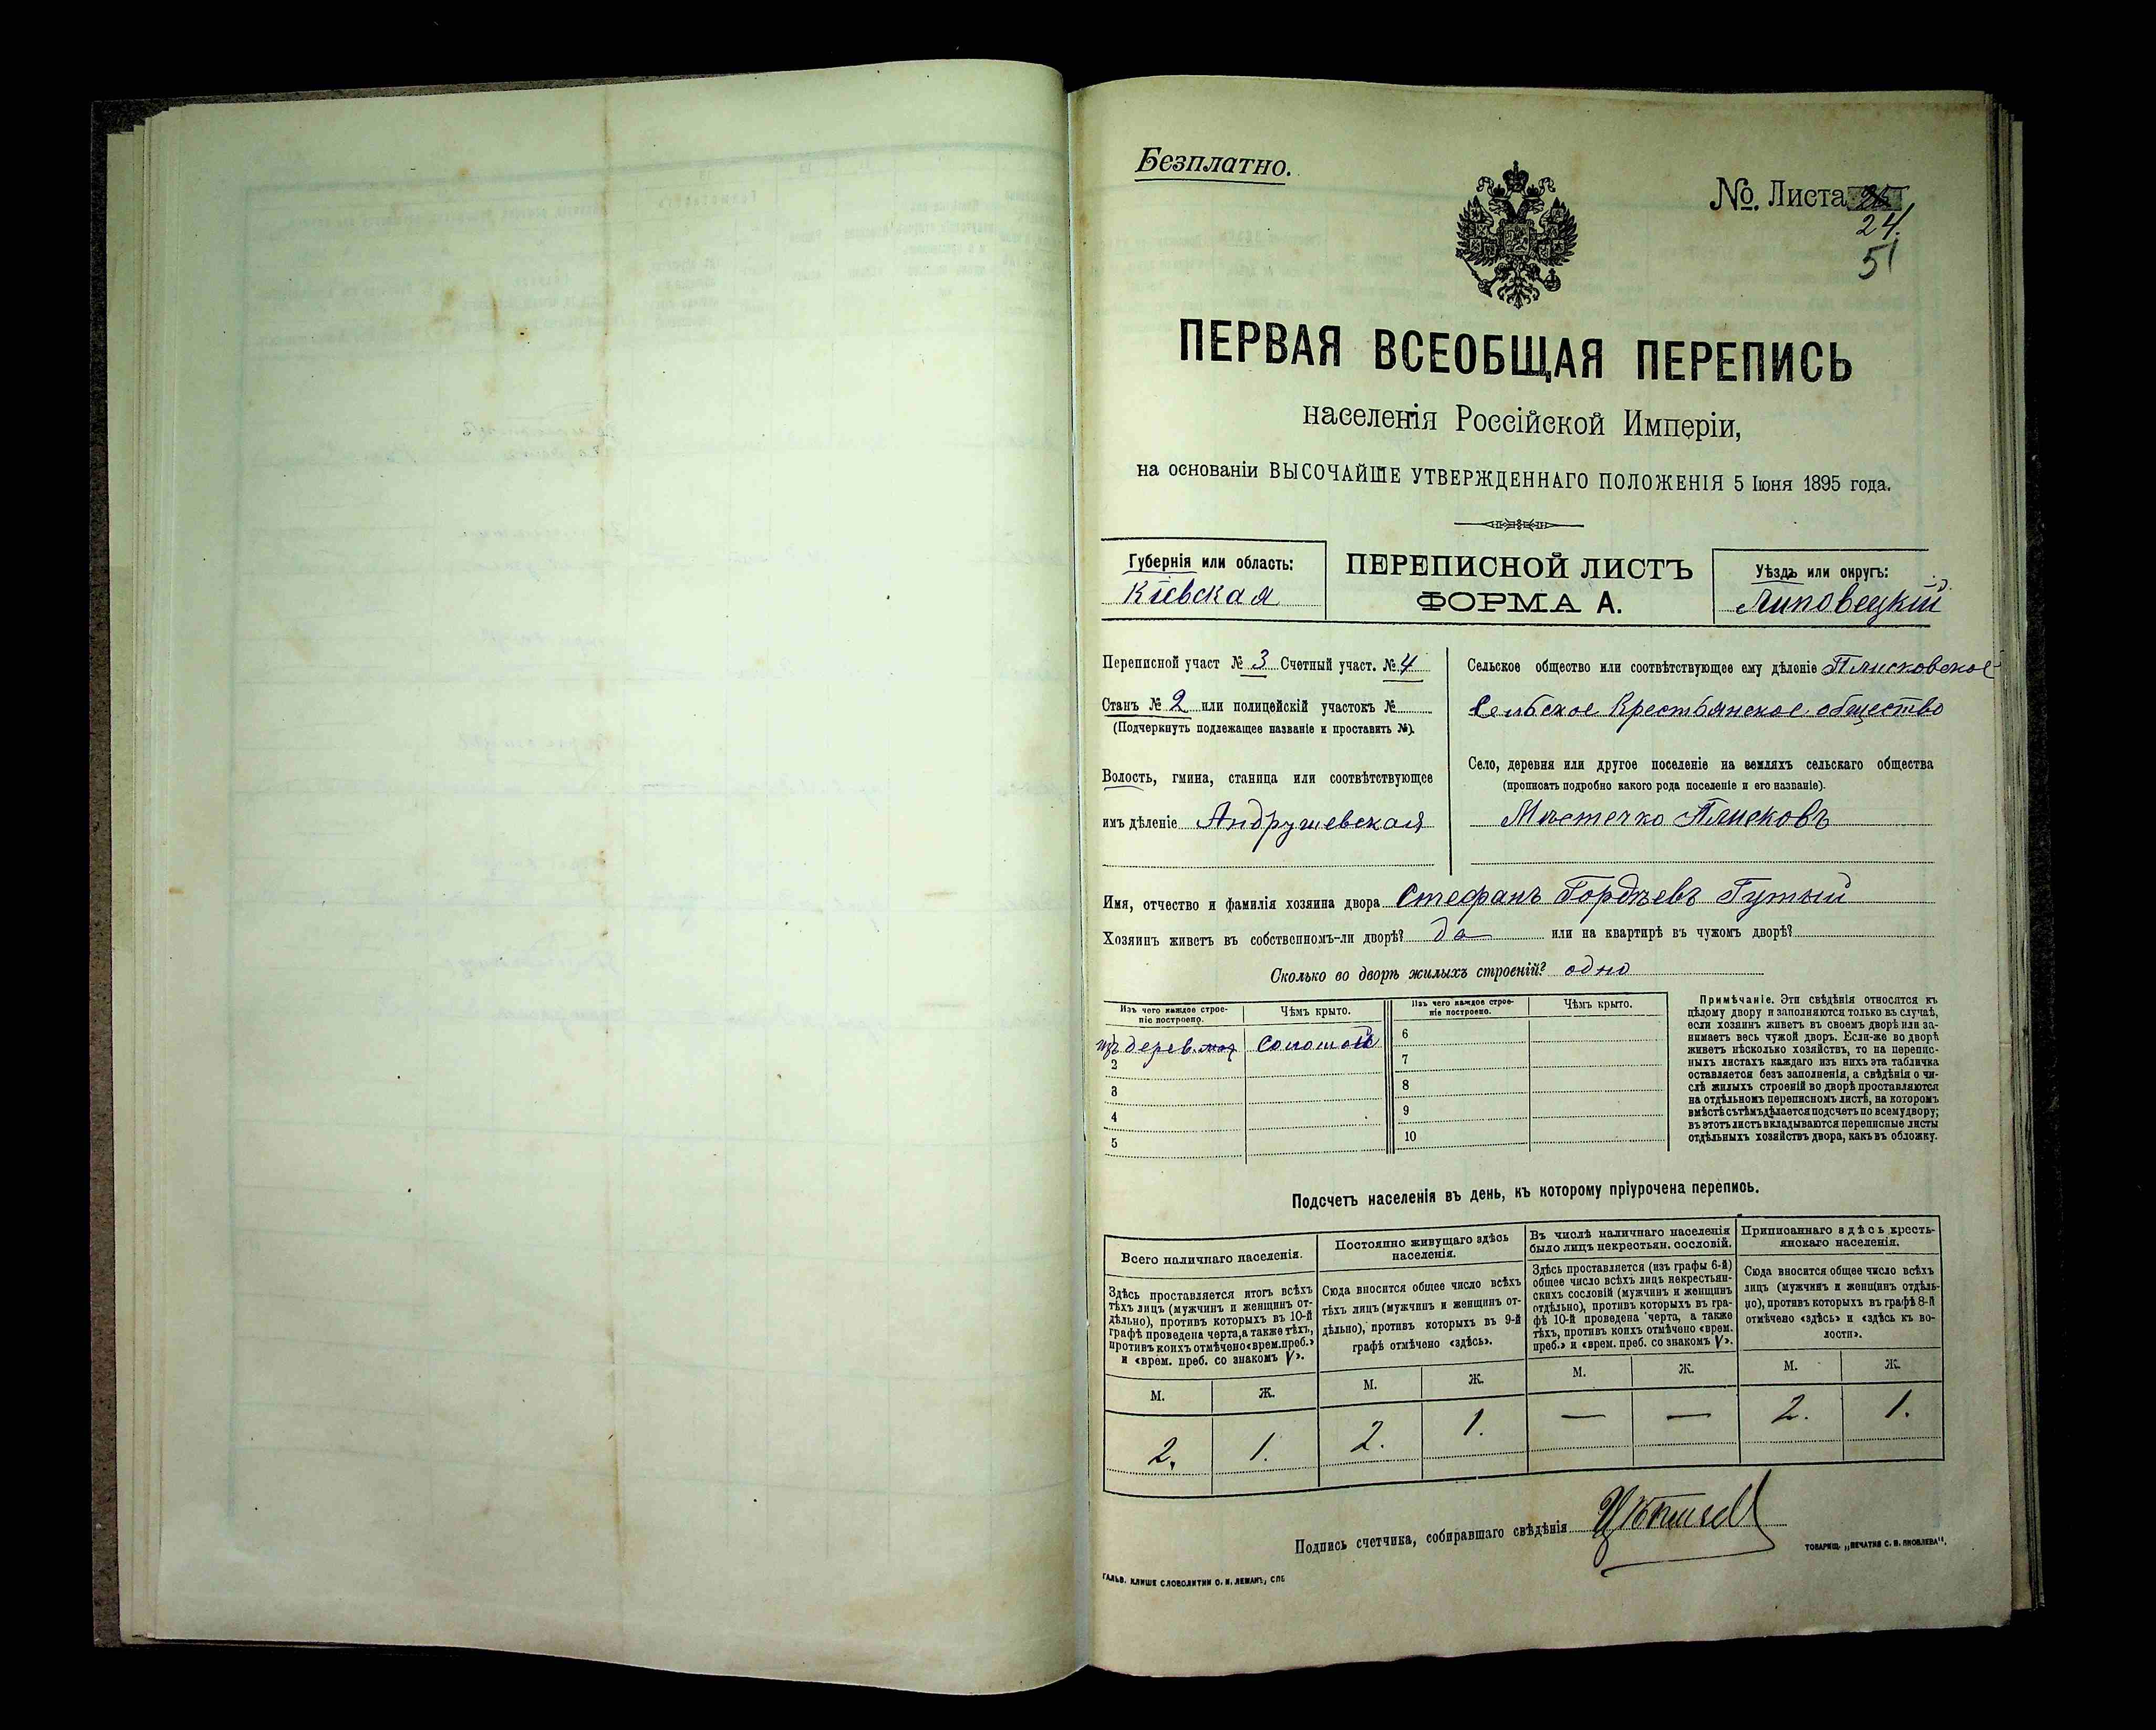 Безплатно.
№. Листа
24.
51
ПЕРВАЯ ВСЕОБЩАЯ ПЕРЕПИСЬ
населенія Россійской Имперіи,
на основаніи ВЫСОЧАЙШЕ УТВЕРЖДЕННАГО ПОЛОЖЕНІЯ 5 Іюня 1895 года.
Губернія или область:
Кіевская
ПЕРЕПИСНОЙ ЛИСТЪ
ФОРМА А.
Уѣздъ или округъ:
Липовецкій
Переписной участ № 3 Счетный участ. № 4
Станъ № 2 или полицейскій участокъ №
(Подчеркнуть подлежащее названіе и проставить №).
Волость, гмина, станица или соотвѣтствующее
имъ дѣленіе Андрушевская
Сельское общество или соотвѣтствующее ему дѣленіе Плисковское
Сельское Крестьянское общество
Село, деревня или другое поселеніе на земляхъ сельскаго общества
(прописать подробно какого рода поселеніе и его названіе).
Мѣстечко Плисковъ
Имя, отчество и фамилія хозяина двора Стефанъ Гордѣевъ Гутый
Хозяинъ живетъ въ собственномъ-ли дворѣ? да или на квартирѣ въ чужомъ дворѣ?
Сколько во дворѣ жилыхъ строеній? одно
Изъ чего каждое строе-
ніе построено.
Чѣмъ крыто.
Изъ чего каждое строе-
ніе построено.
Чѣмъ крыто.
изъ дерев. соломой
2
3
4
5
6
7
8
9
10
Примѣчаніе. Эти свѣдѣнія относятся къ
цѣлому двору и заполняются только въ случаѣ,
если хозяинъ живетъ въ своемъ дворѣ или за-
нимаетъ весь чужой дворъ. Если-же во дворѣ
живетъ нѣсколько хозяйствъ, то на перепис-
ныхъ листахъ каждаго изъ нихъ эта табличка
оставляется безъ заполненія, а свѣдѣнія о чи-
слѣ жилыхъ строеній во дворѣ проставляются
на отдѣльномъ переписномъ листѣ, на которомъ
вмѣстѣ съ тѣмъ дѣлается подсчетъ по всему двору;
въ этотъ листъ вкладываются переписные листы
отдѣльныхъ хозяйствъ двора, какъ въ обложку.
Подсчетъ населенія въ день, къ которому пріурочена перепись.
Всего наличнаго населенія.
Здѣсь проставляется итогъ всѣхъ
тѣхъ лицъ (мужчинъ и женщинъ от-
дѣльно), противъ которыхъ въ 10-й
графѣ проведена черта, а также тѣхъ,
противъ коихъ отмѣчено «врем. преб.»
и «врем. преб. со знакомъ V».
Постоянно живущаго здѣсь
населенія.
Сюда вносится общее число всѣхъ
тѣхъ лицъ (мужчинъ и женщинъ от-
дѣльно), противъ которыхъ въ 9-й
графѣ отмѣчено «здѣсь».
Въ числѣ наличнаго населенія
было лицъ некрестьян. сословій.
Здѣсь проставляется (изъ графы 6-й)
общее число всѣхъ лицъ некрестьян-
скихъ сословій (мужчинъ и женщинъ
отдѣльно), противъ которыхъ въ гра-
фѣ 10-й проведена черта, а также
тѣхъ, противъ коихъ отмѣчено «врем.
преб.» и «врем. преб. со знакомъ V».
Приписаннаго здѣсь кресть-
янскаго населенія.
Сюда вносится общее число всѣхъ
лицъ (мужчинъ и женщинъ отдѣль-
но), противъ которыхъ въ графѣ 8-й
отмѣчено «здѣсь» и «здѣсь къ во-
лости».
М. Ж. М. Ж. М. Ж. М. Ж.
2. 1. 2. 1. — — 2. 1.
Подпись счетчика, собиравшаго свѣдѣнія
ТОВАРИЩ. „ПЕЧАТНЯ С. П. ЯКОВЛЕВА".
ГАЛЬВ. КЛИШЕ СЛОВОЛИТНИ О. И. ЛЕМАНЪ, СПБ